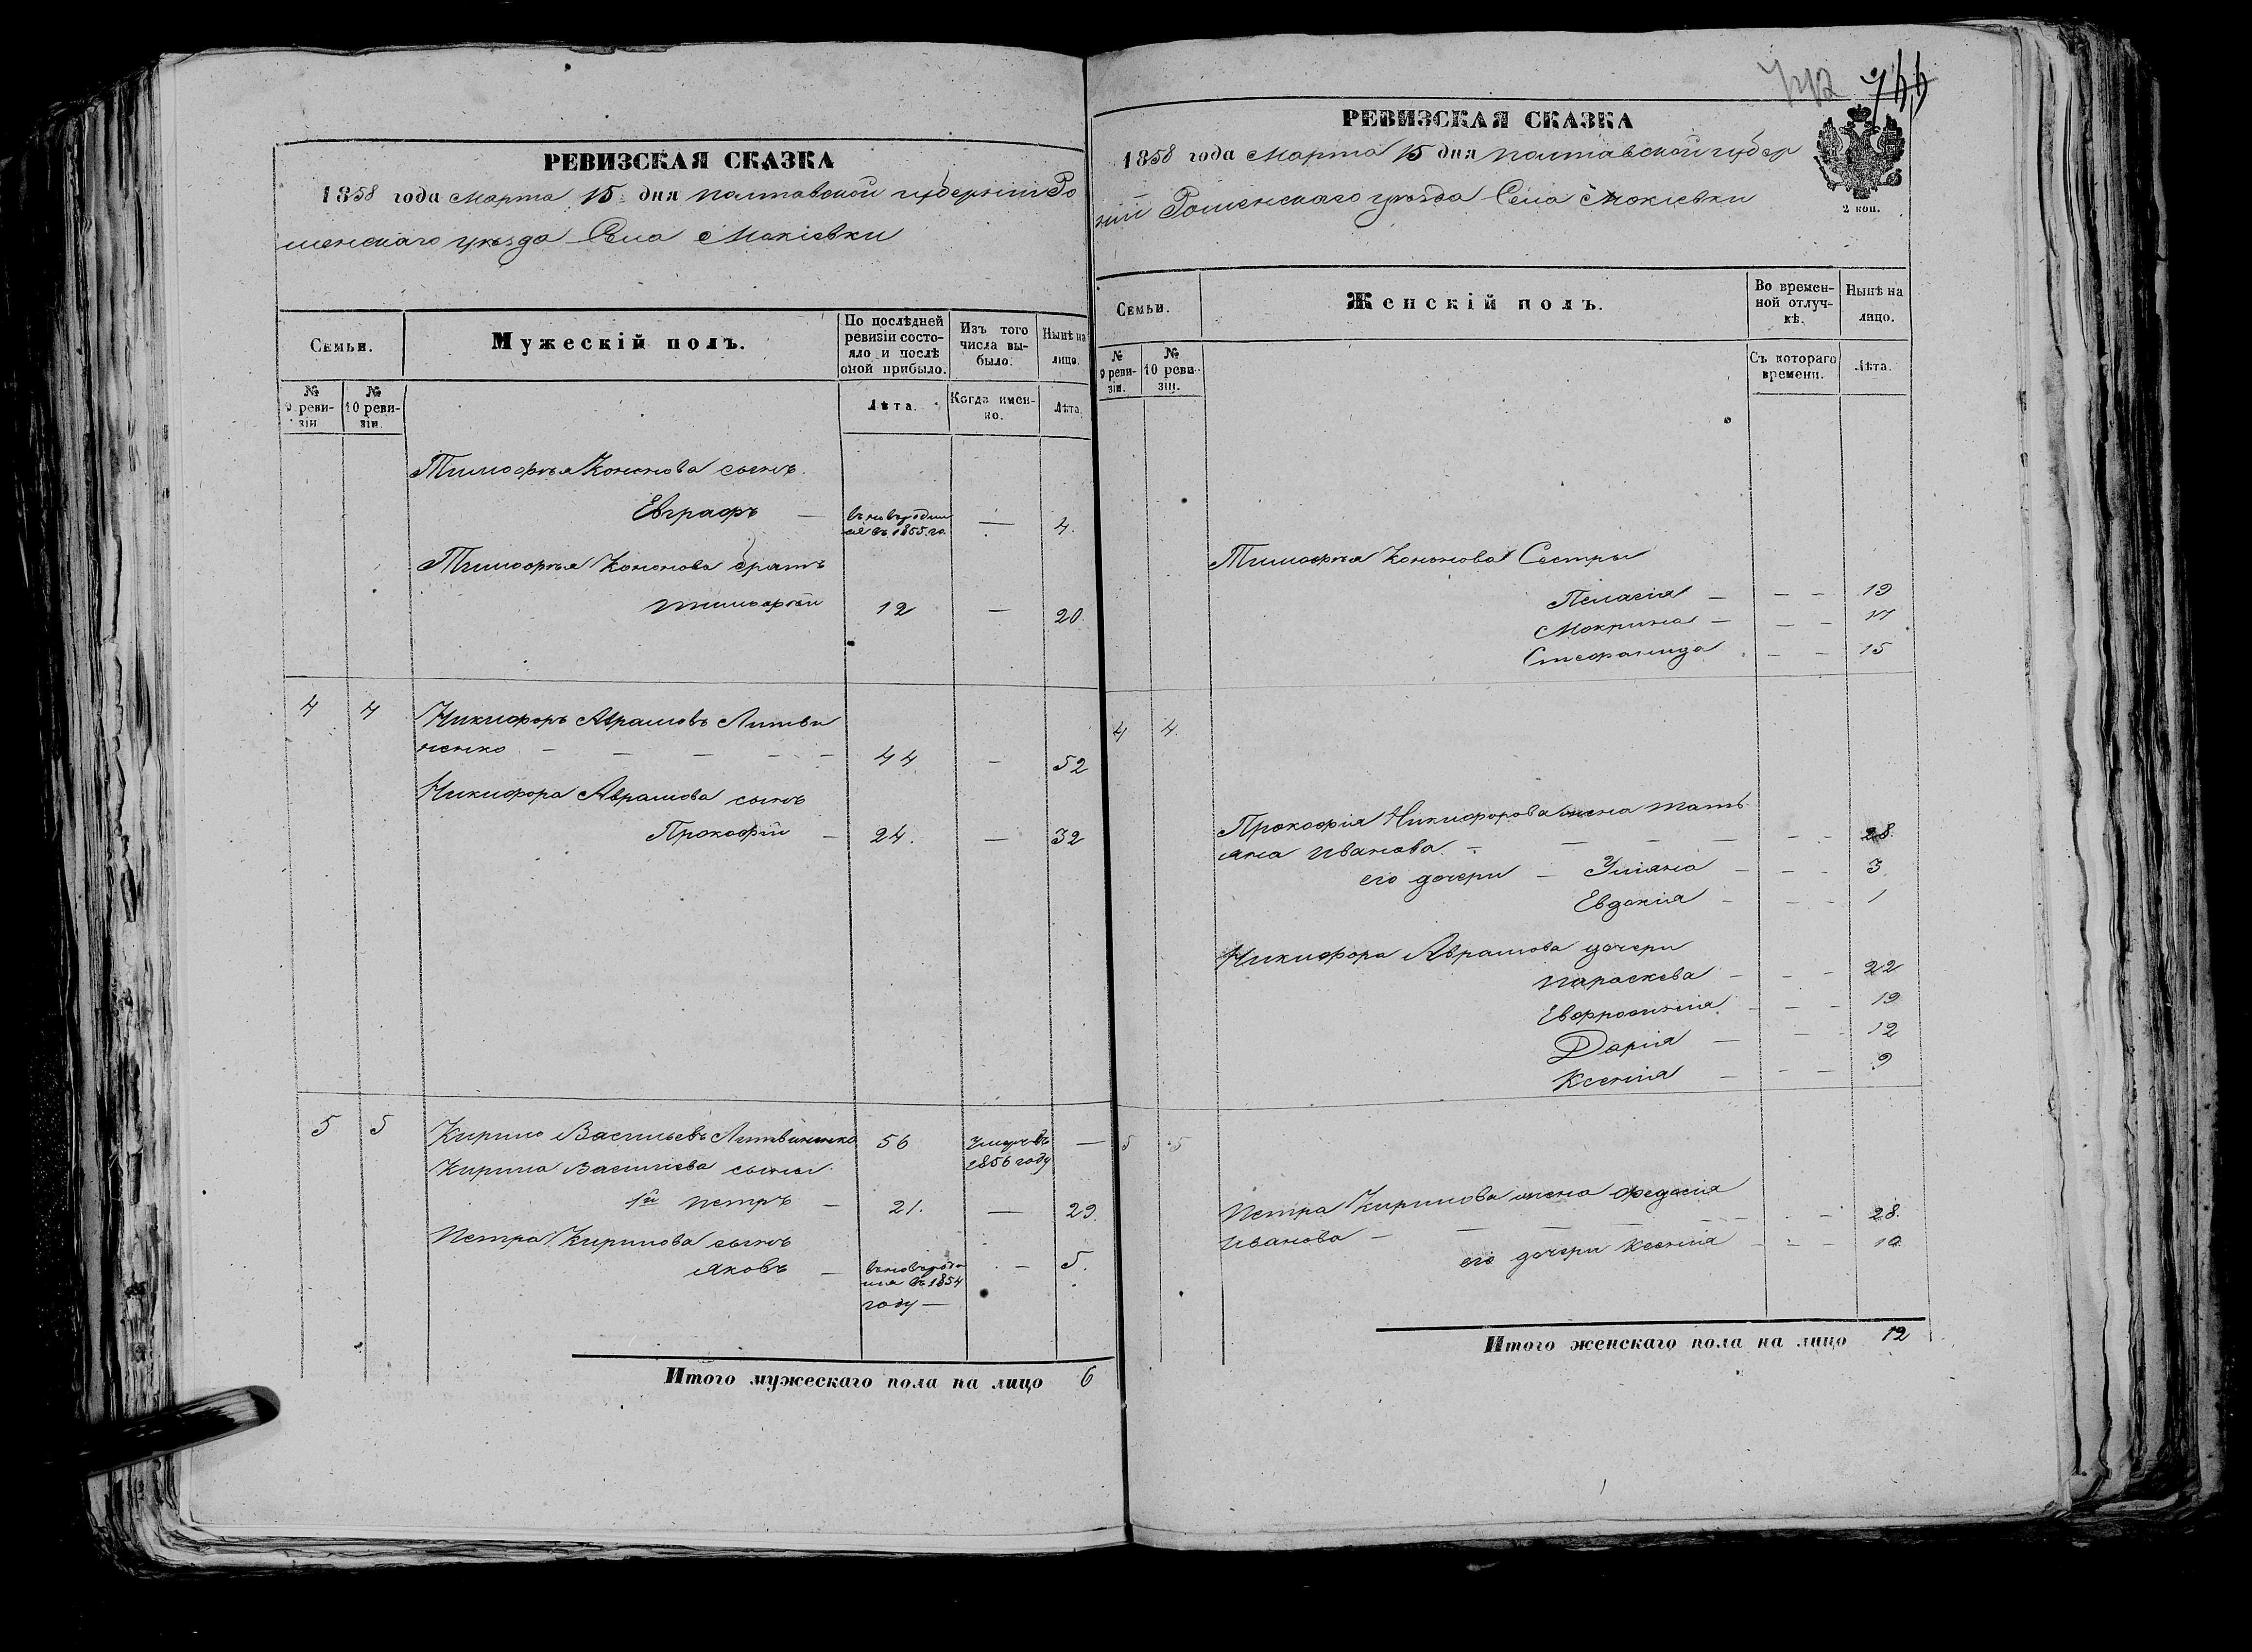 РЕВИЗСКАЯ СКАЗКА
1858 года Марта 15 дня Полтавской губерніи Ро
менскаго уезда Села Макіевки
Семьи.
Мужескій полъ.
По послѣдней ревизіи состо-
яло и послѣ оной прибыло.
Изъ того числа вы-
было.
Нынѣ на лицо.
№ 9 реви-
зіи
№ 10 реви-
зіи.
Лѣта.
Когда имен-
но.
Лѣта.
Тимофѣя Кононова сынъ
Евграфъ — — 4.
въ 1855 го.
Тимофѣя Кононова братъ
Тимофѣй 12 — 20.
4 4 Никифоръ Аврамовъ Литви
ненко — — — — — 44 — 52
Никифора Аврамова сынъ
Прокофій — 24. — 32
5 5 Кирило Васильевъ Литвиненко 56 Умеръ въ —
1856 году
Кирила Василіева сыны
1й Петръ — 21. — 29.
Петра Кирилова сынъ
Яковъ — — 5.
въ 1854
году —
Итого мужескаго пола на лицо 6
РЕВИЗСКАЯ СКАЗКА
1858 года Марта 15 дня Полтавской губер
ніи Роменскаго уѣзда Села Мокіевки
2 коп.
Семьи.
Женскій полъ.
Во времен-
ной отлуч-
кѣ.
Нынѣ на лицо.
№ 9 реви-
зіи.
№ 10 реви-
зіи.
Съ котораго времени.
Лѣта.
Тимофѣя Кононова Сестры
Пелагія — — — 19
Мокрина — — — 17
Стефанида — — 15
4 4.
Прокофія Никифорова жена Тать
яна Иванова — — — — — — 28.
его дочери — Уліяна — — — 3
Евдокія — — — 1
Никифора Аврамова дочери
Параскева — — — 22
Евфросинія — — — 19
Дарія — — — 12
Ксенія — — — 9
5 5
Петра Кирилова жена Федосія
Иванова — — — — — — 28.
его дочери Ксенія — — — 10
Итого женскаго пола на лицо 12